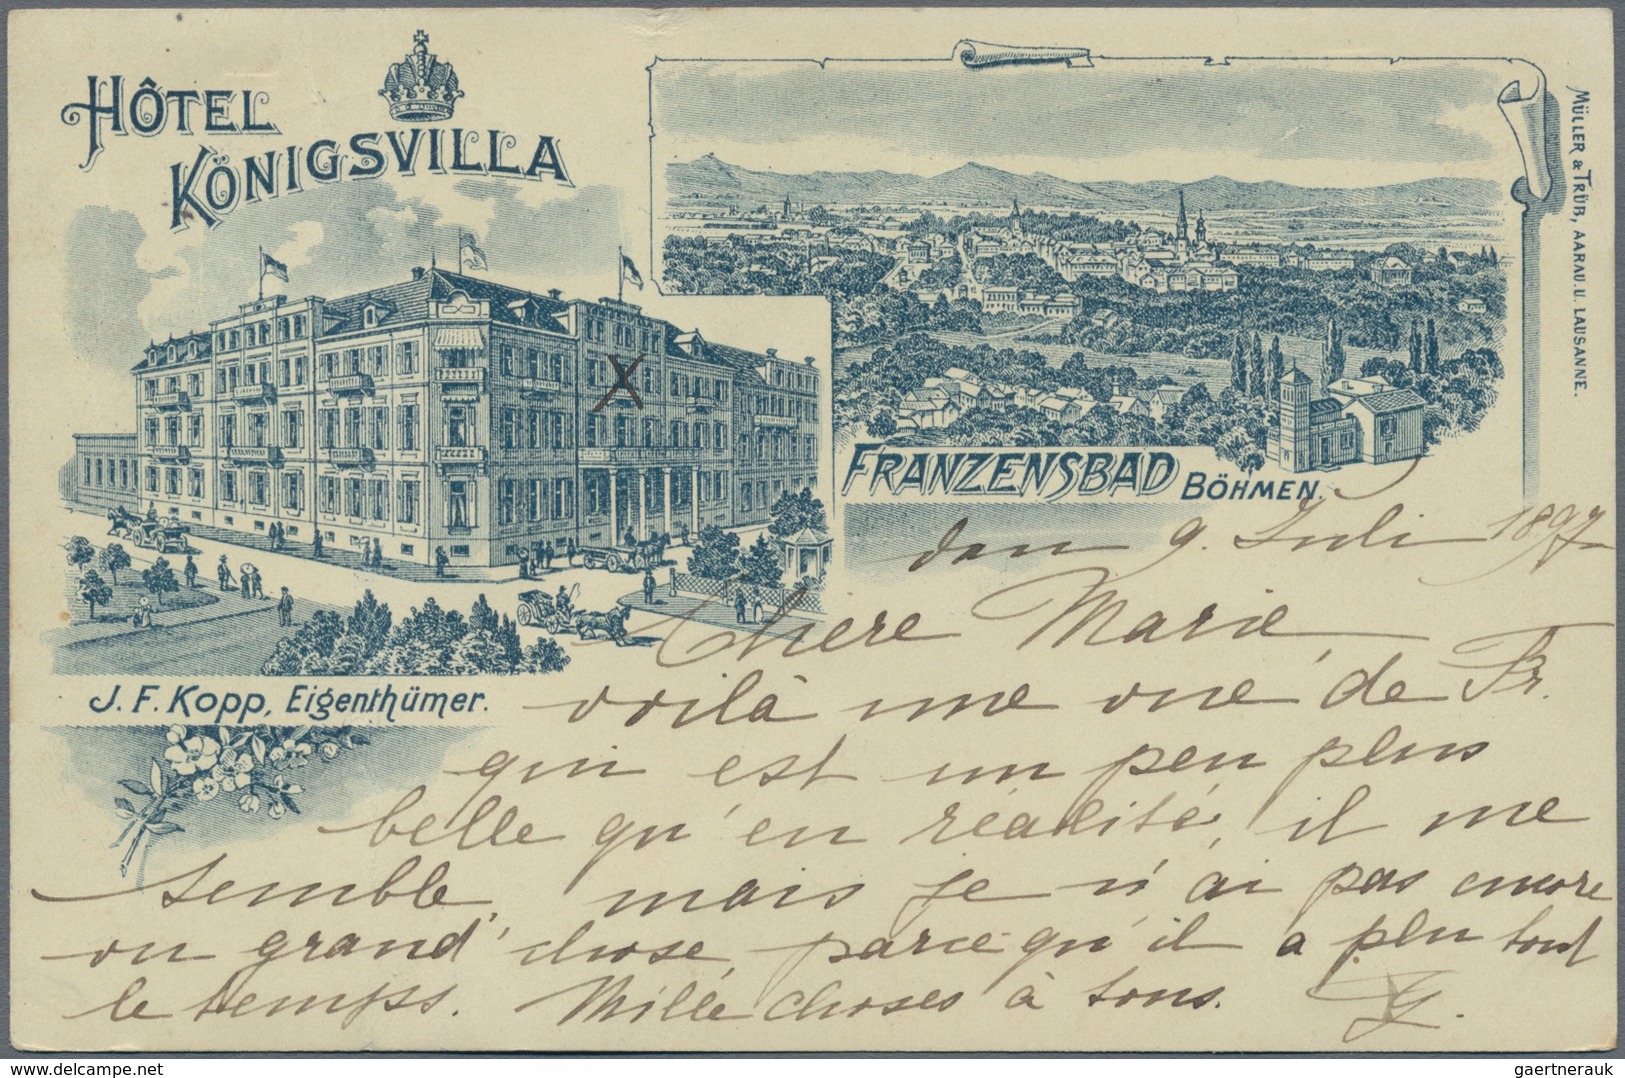 HÔTEL
KÖNIGSVILLA
MÜLLER & TRÜB, AARAU U. LAUSANNE.
FRANZENSBAD BÖHMEN.
J. F. KOPP, Eigenthümer.
X
den 9. Juli 1897
Chere Marie,
voilà une vue de Fr.
qui est un peu plus
belle qu'en réalité, il me
semble, mais je n'ai pas encore
vu grand' chose, parce qu'il a plu tout
le temps. Mille choses à tous.
delcampe.net
gaertnerauk